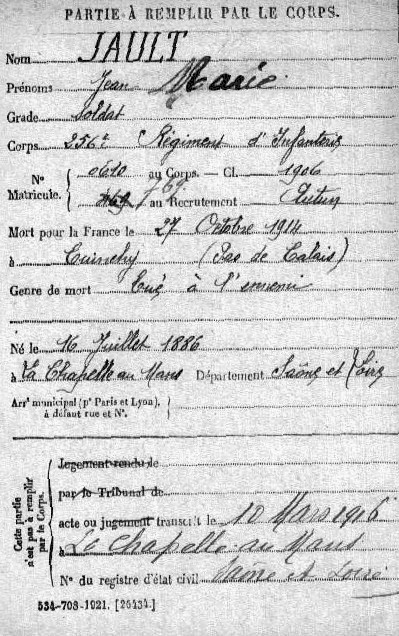 PARTIE À REMPLIR PAR LE CORPS.
Nom JAULT
Prénoms Jean Marie
Grade Soldat
Corps 256e Régiment d'Infanterie
N° Matricule. { 0610 au Corps. — Cl. 1906
769 au Recrutement Autun
Mort pour la France le 27 Octobre 1914
à Cuinchy (Pas de Calais)
Genre de mort Tué à l'ennemi
Né le 16 Juillet 1886
à La Chapelle au Mans Département Saône et Loire
Arrt municipal (pr Paris et Lyon), à défaut rue et N°. {
Cette partie n'est pas à remplir par le Corps.
Jugement rendu le
par le Tribunal de
acte ou jugement transcrit le 10 Mars 1916
à La Chapelle au Mans
N° du registre d'état civil Saône et Loire
534-708-1921. [26434.]